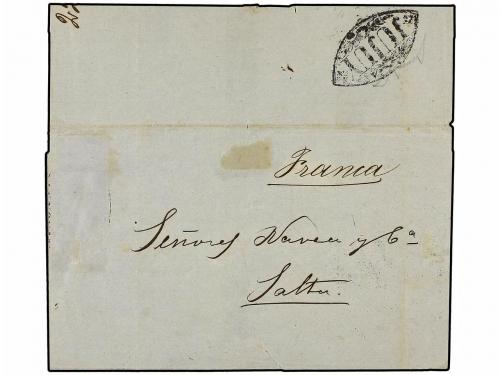 Franca
Señores Navea y Cª
Salta.